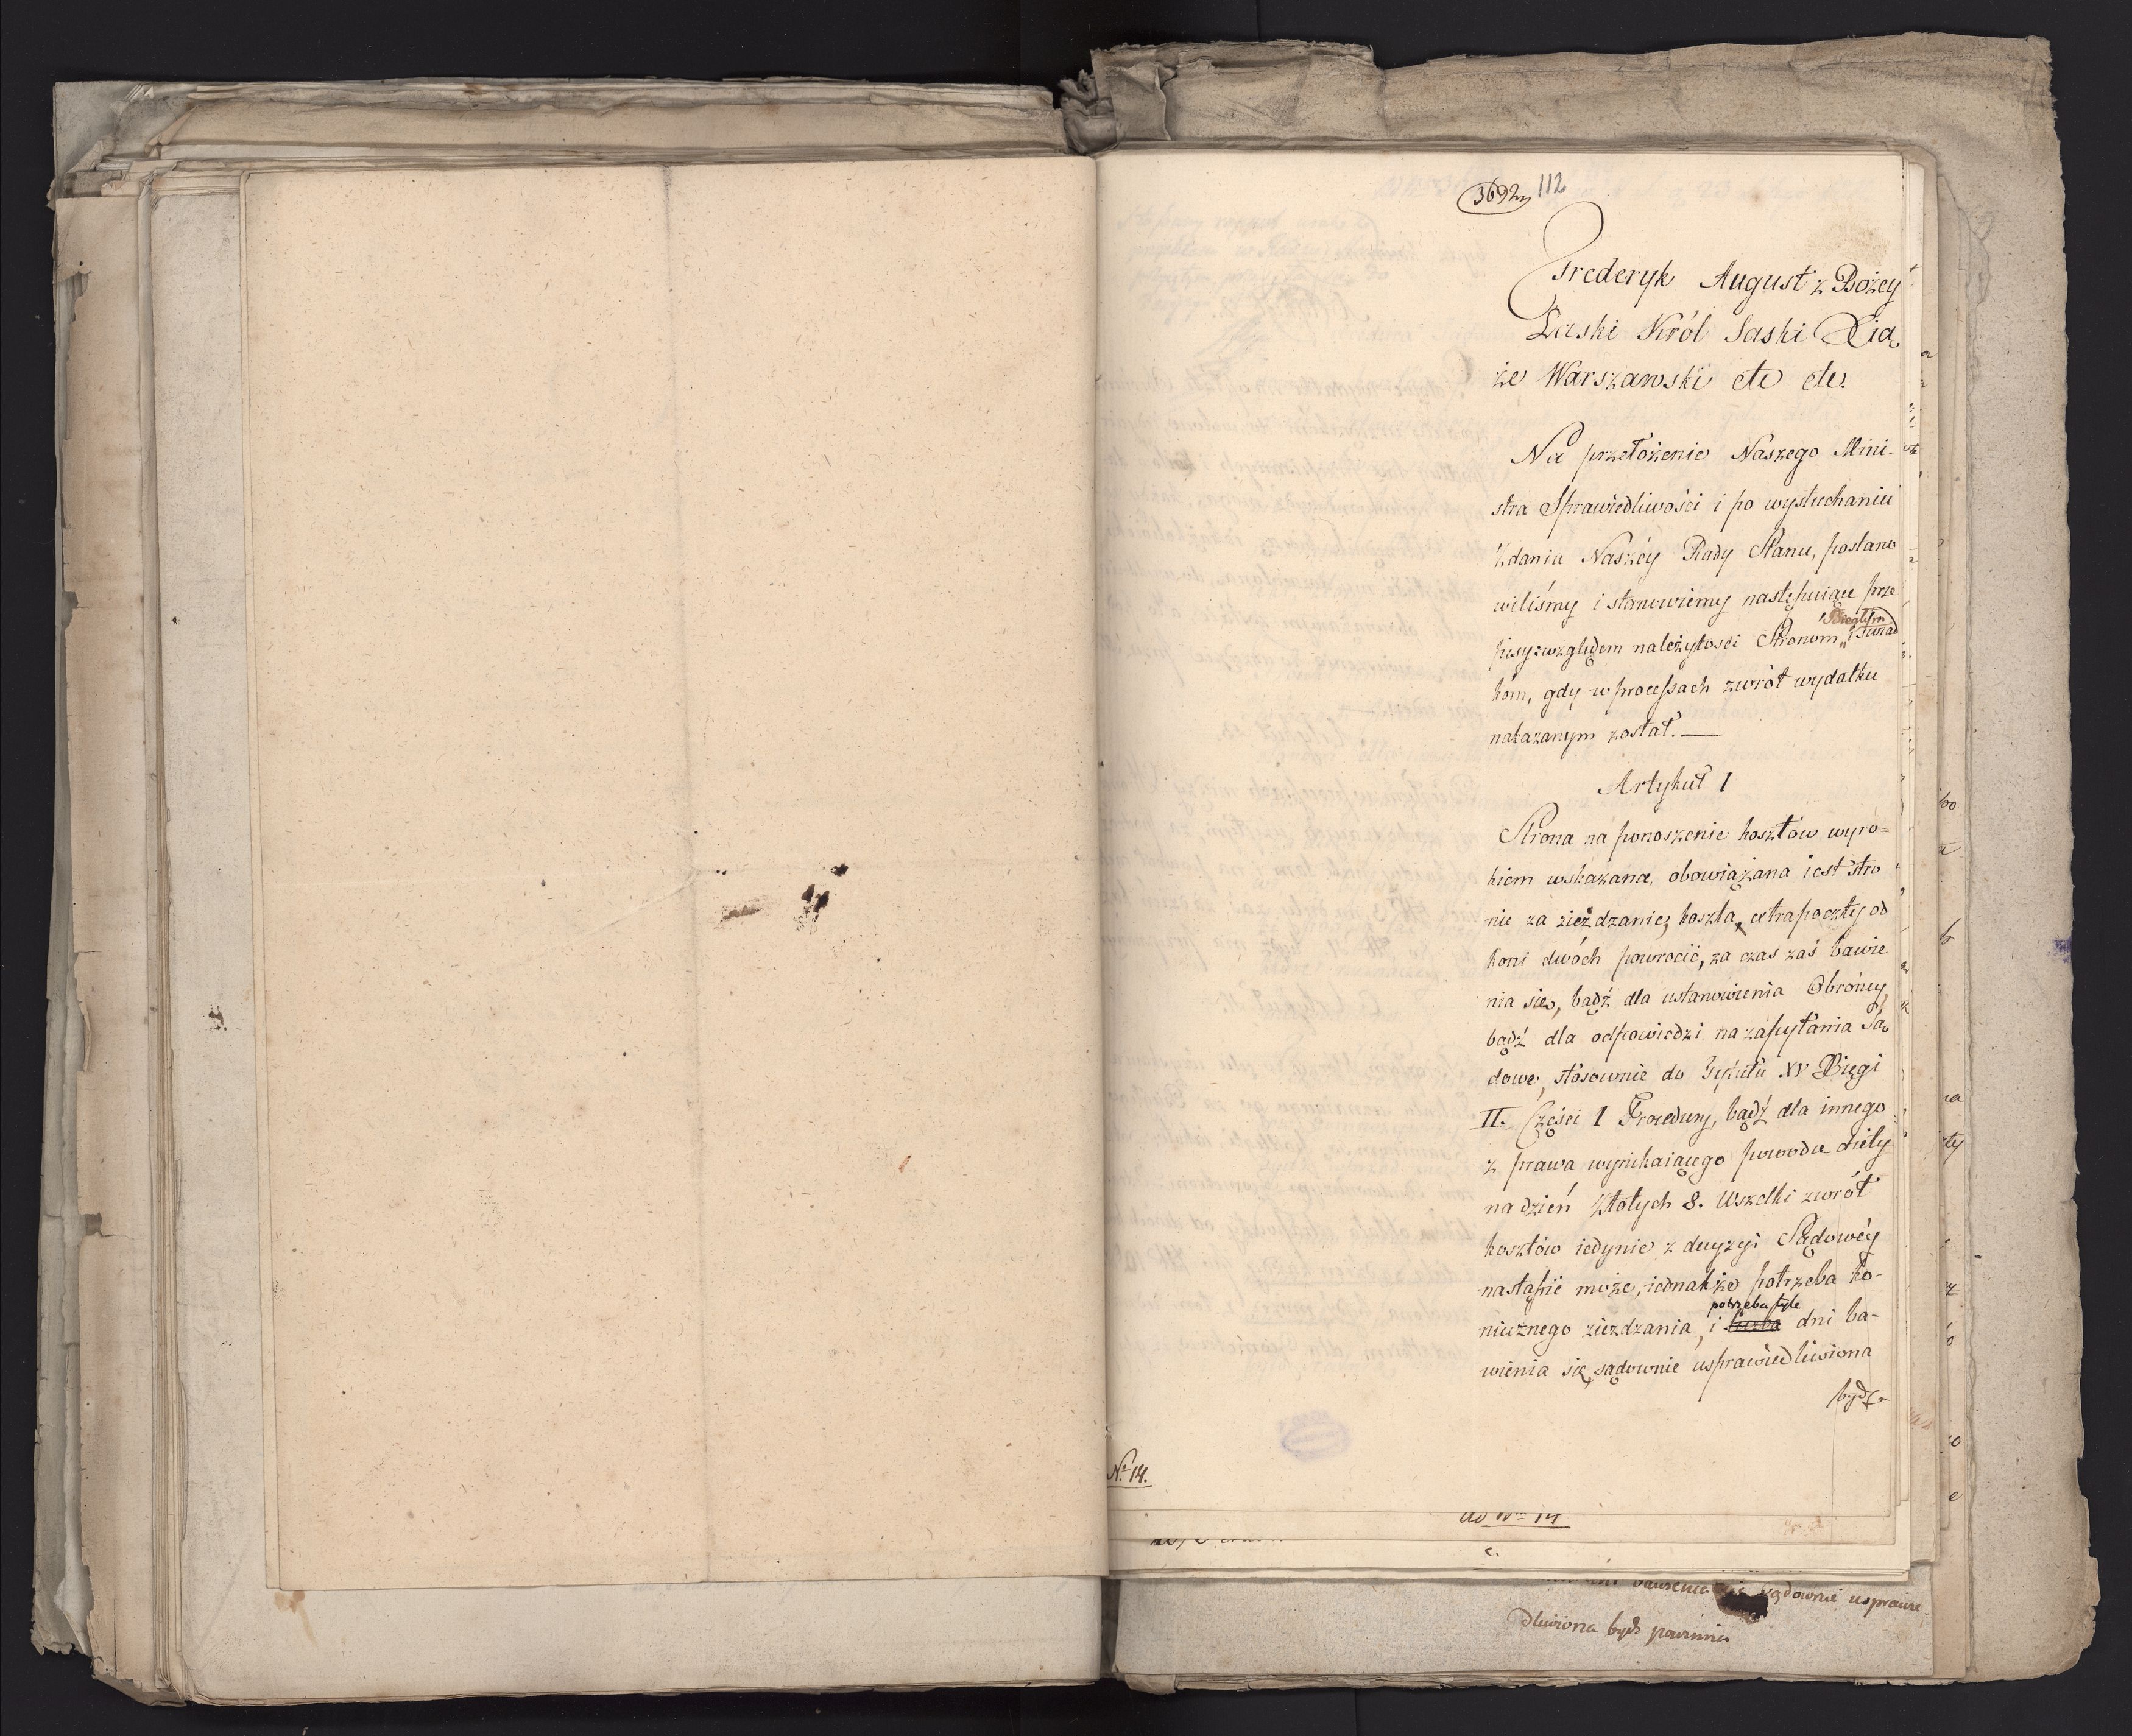 3692 112
Frederyk August z Bożey
Łaski Król Saski Xią
że Warszawski etc etc.
Na przełożenie Naszego Mini-
stra Sprawiedliwości i po wysłuchaniu
Zdania Naszéy Rady Stanu, postano
wiliśmy i stanowiemy następuiące prze
Biegłym
pisy względem należytości Stronom „ i Swiad
kóm, gdy w processach zwrót wydatku
nakazanym został. —
Artykuł I
Strona na ponoszenie kosztów wyro=
kiem wskazana, obowiązana iest stro
nie za zieżdzanie, koszta, extrapoczty od
koni dwóch powrocić, za czas zaś bawie
nia się, bądź dla ustanowienia Obrońcy,
bądź dla odpowiedzi na zapytania Są
dowe, stósownie do Tytułu XV Xięgi
II. Części I Procedury, bądź dla innego
z prawa wynikaiącego powodu diety
na dzień Złotych 8. Wszelki zwrót
kosztów iedynie z decyzyi Sądowéy
nastąpić może, iednakże potrzeba ko-
potrzeba tyle
niecznego zieżdzania, i liczba dni ba-
wienia się, sądownie usprawiedliwiona
bydź
No 14.
ad No 14
bawienia się sądownie usprawie
dliwiona bydź powinna